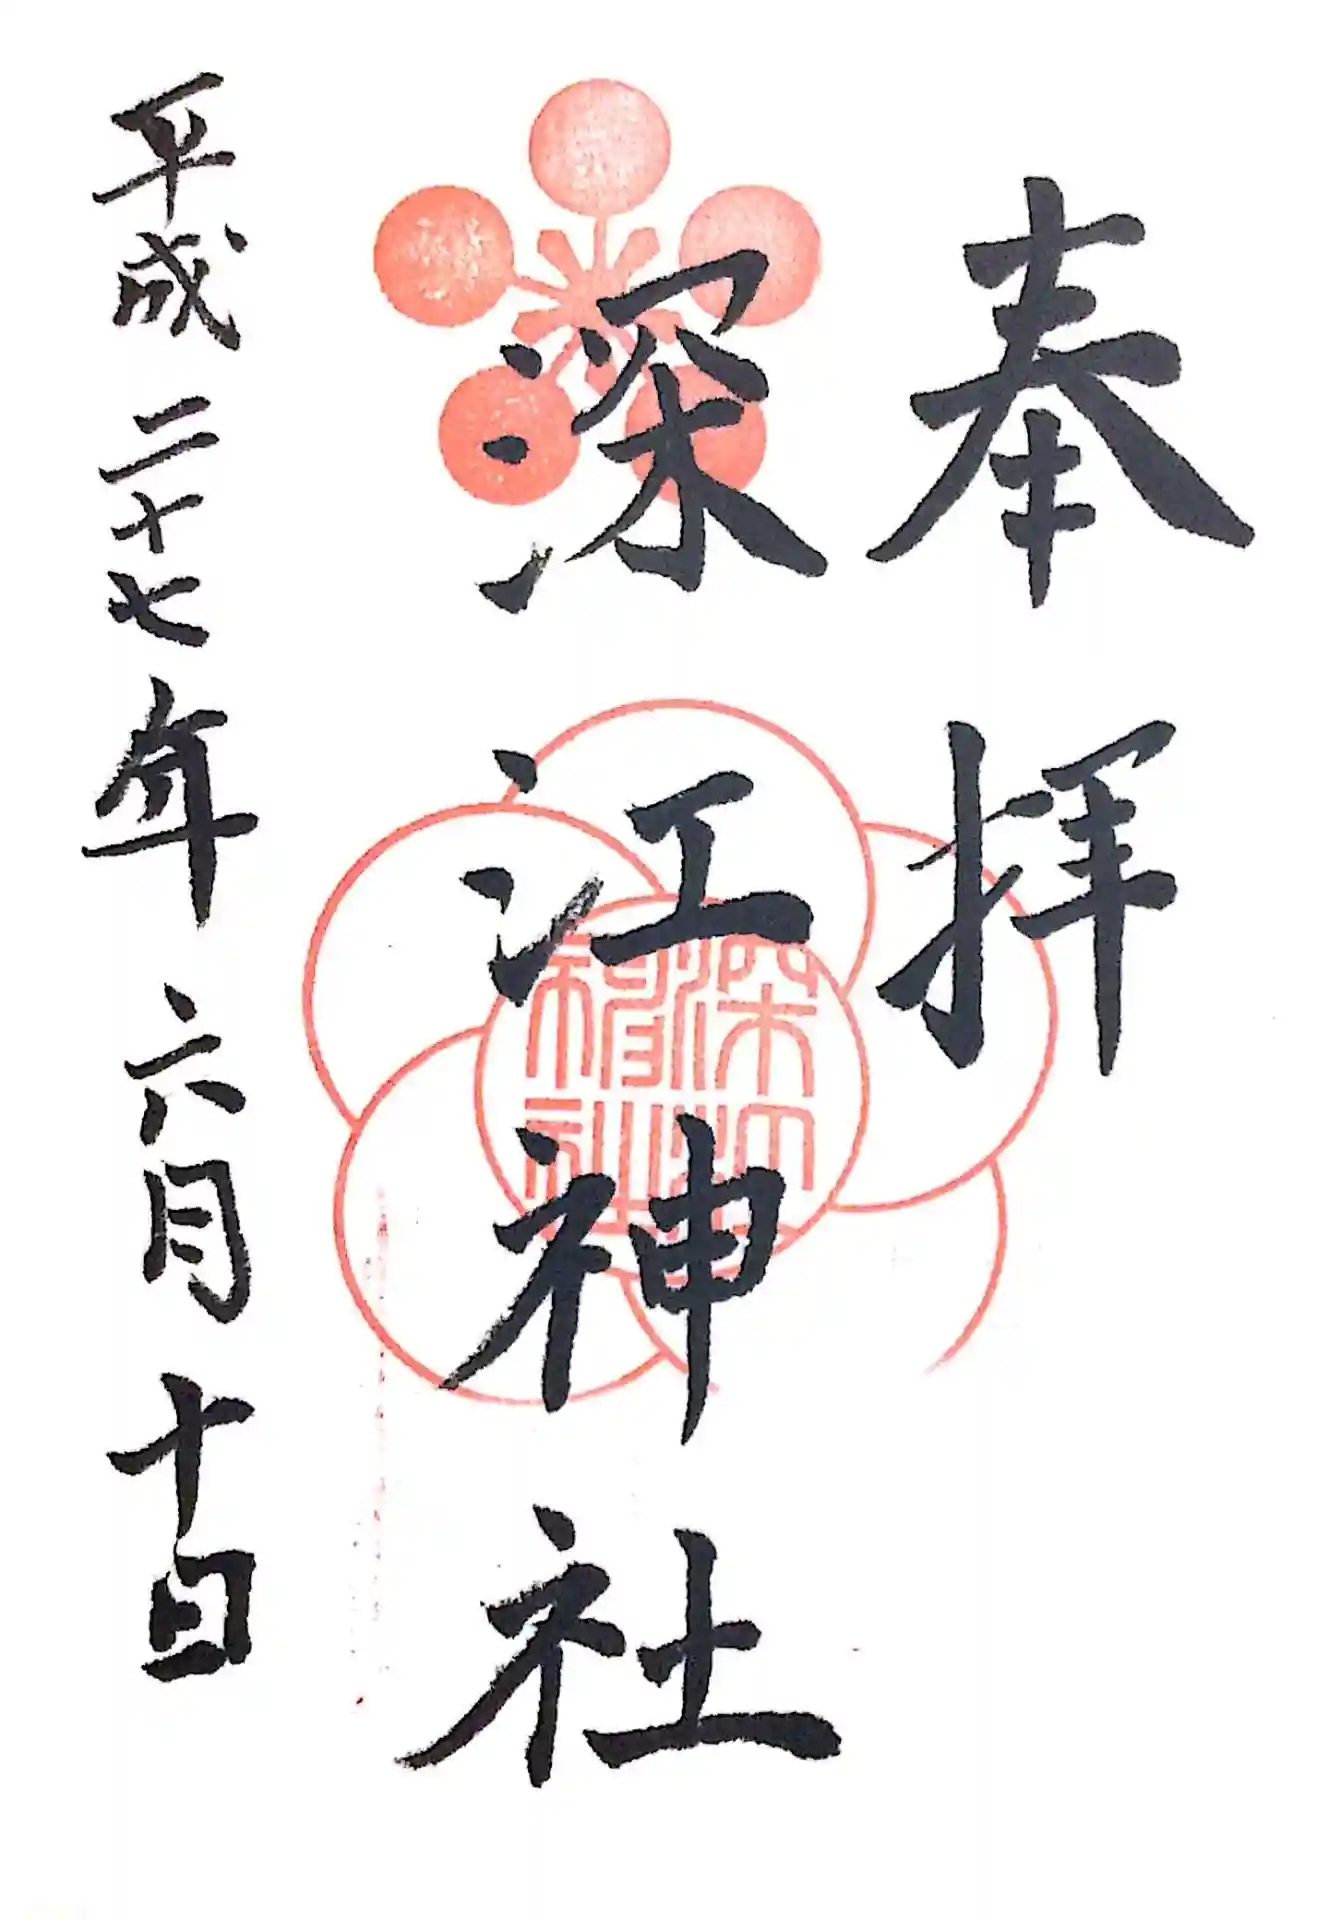 奉拝
深江神社
平成二十七年六月十日
深江
神社